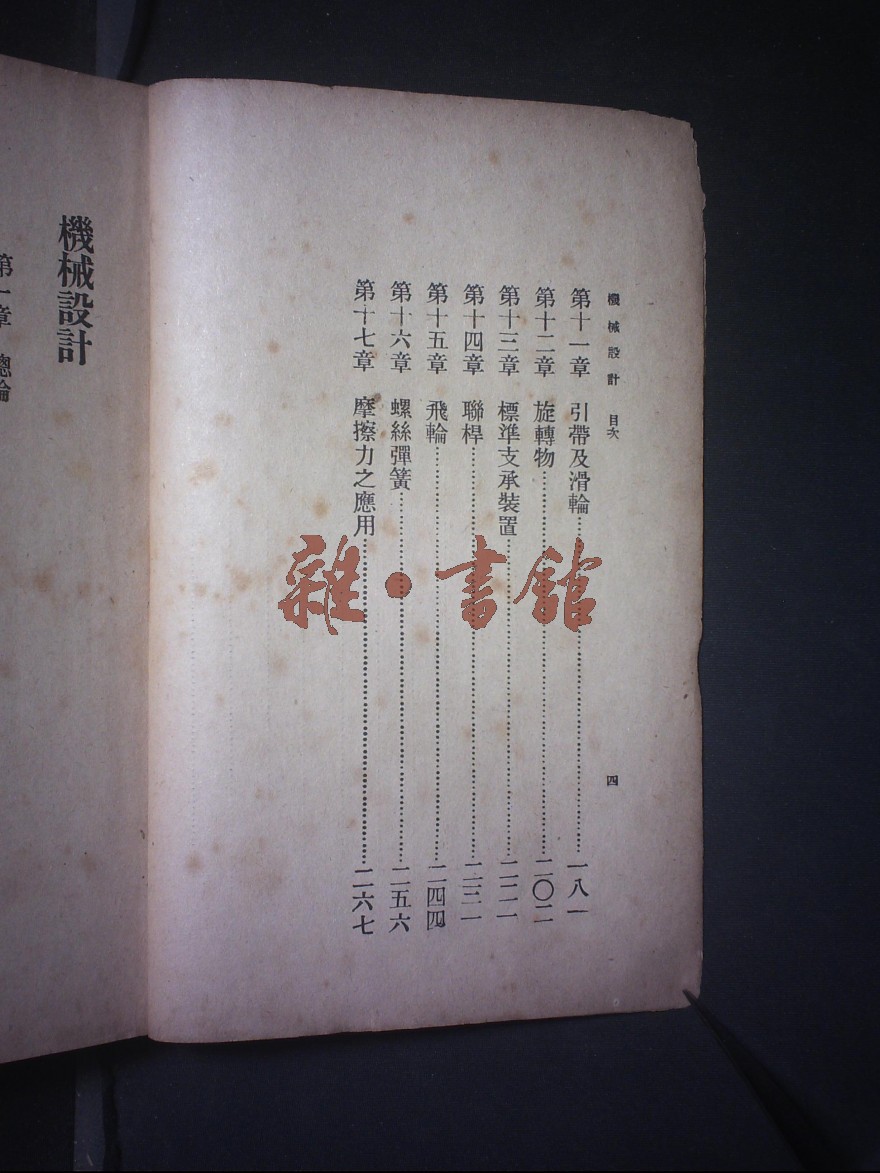 機械設計 目次
四
第十一章 引帶及滑輪 一八一
第十二章 旋轉物 二〇二
第十三章 標準支承裝置 二二一
第十四章 聯桿 二三一
第十五章 飛輪 二四四
第十六章 螺絲彈簧 二五六
第十七章 摩擦力之應用 二六七
機械設計
第一章 總論
雜·書館